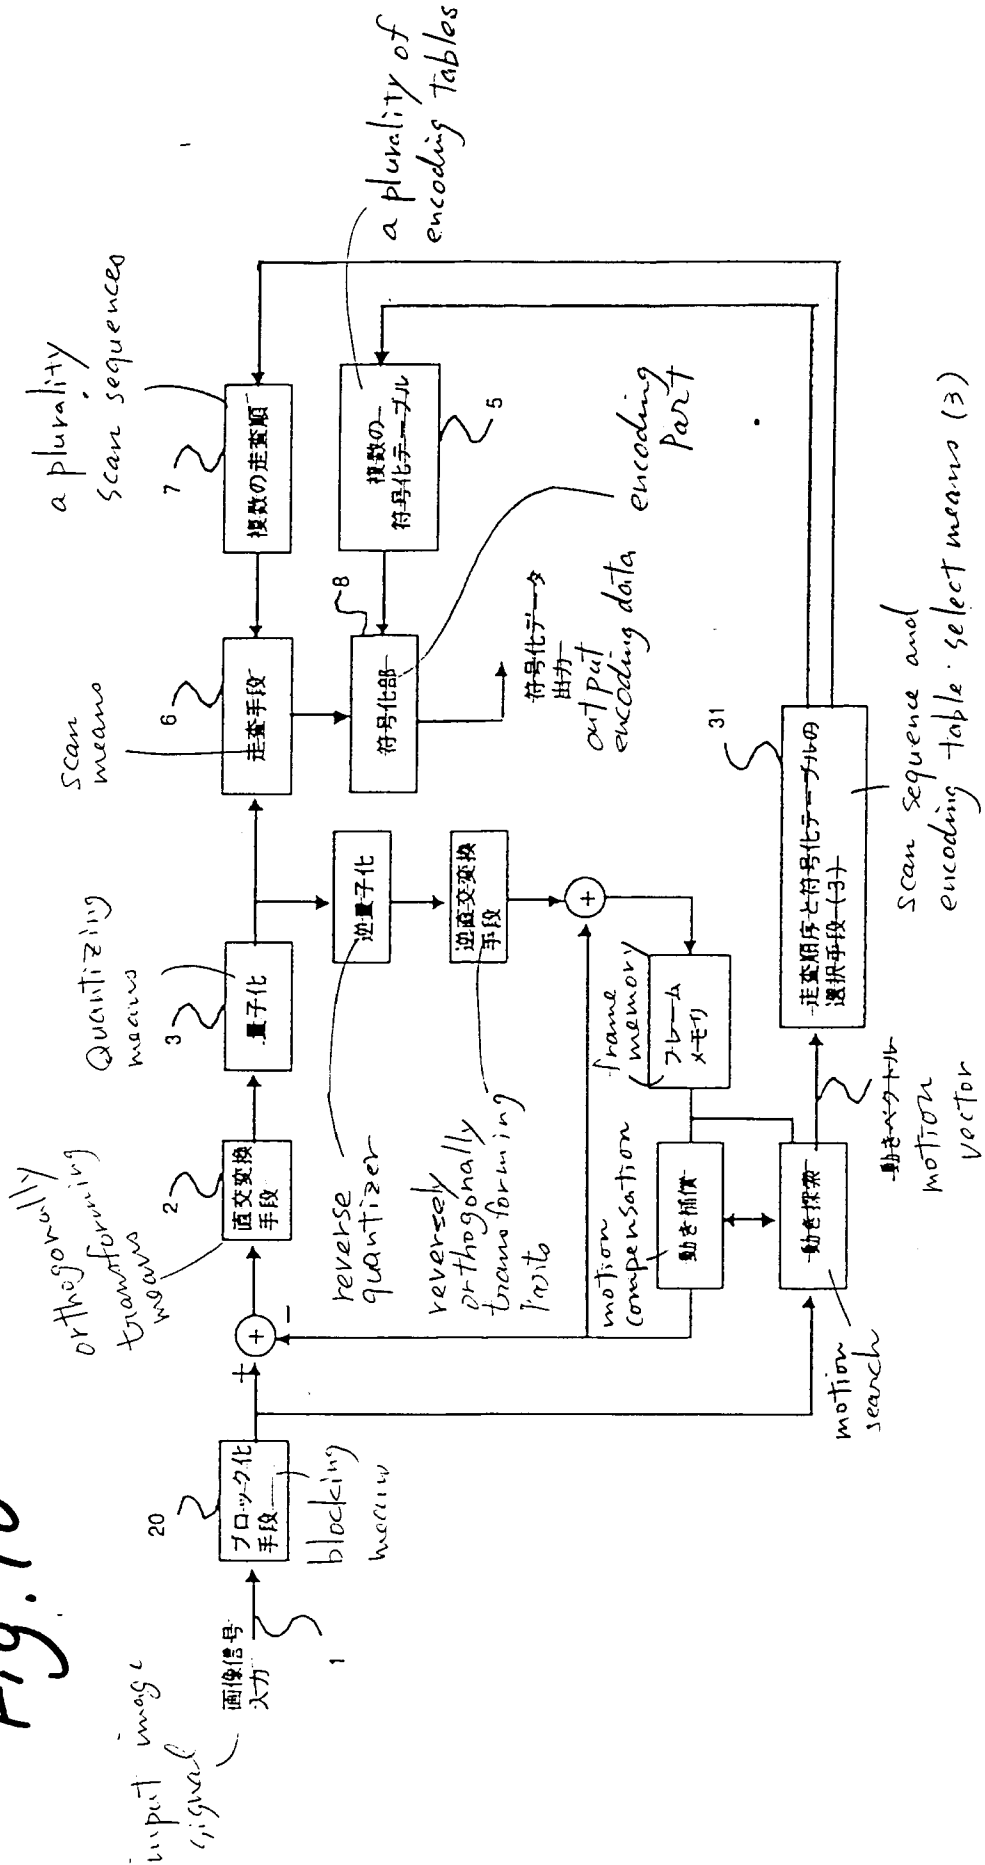 Fig. 10
input image
signal
画像信号
入力
1
20
ブロック化
手段
blocking
means
+
+
−
orthogonally
transforming
means
2
直交変換
手段
Quantizing
means
3
量子化
scan
means
6
走査手段
a plurality
scan sequences
7
複数の走査順
a plurality of
encoding tables
複数の
符号化テーブル
5
8
符号化部
encoding
Part
符号化データ
出力
output
encoding data
逆量子化
reverse
quantizer
逆直交変換
手段
reversely
orthogonally
transforming
+
frame
memory
フレーム
メモリ
motion
compensation
動き補償
動き探索
motion
search
動きベクトル
motion
vector
31
走査順序と符号化テーブルの
選択手段(3)
scan sequence and
encoding table select means (3)